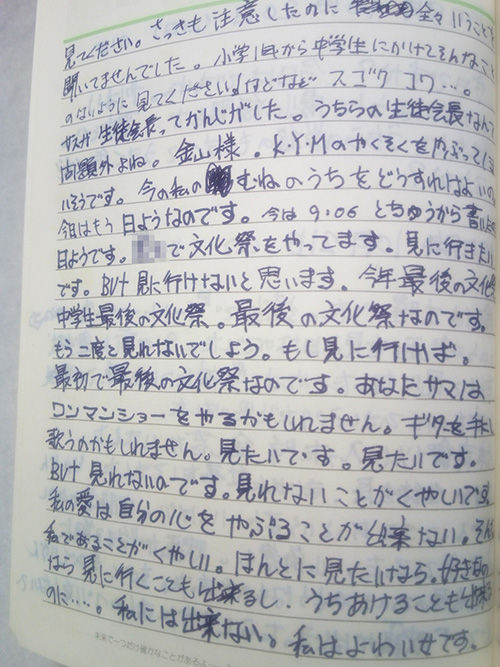 見てください。さっきも注意したのに 全々いうことを
聞いてませんでした。小学1年から中学生にかけてそんなこ
のないように見てください。」などなど スゴク コワ…。
サスガ 生徒会長ってかんじがした。うちらの生徒会長なん
問題外よね。金山様。K・Y・Mのやくそくをやぶってしま
いそうです。今の私のむねのうちをどうすればよいの
今日はもう日ようなのです。今は9:06 とちゅうから書い
日ようです。で文化祭をやってます。見に行きたい
です。BUt 見に行けないと思います。今年最後の文化祭
中学生最後の文化祭。最後の文化祭なのです。
もう二度と見れないでしょう。もし見に行けば。
最初で最後の文化祭なのです。あなたサマは
ワンマンショーをやるかもしれません。ギターを手に
歌うのかもしれません。見たいです。見たいです。
BUt 見れないのです。見れないことがくやしいです
私の愛は自分の心をやぶることが出来ない。そん
私であることがくやしい。ほんとに見たいなら。好きなの
なら見に行くことも出来るし、うちあけることも出来
のに…。私には出来ない。私はよわい女です。
未来で一つだけ確かなことがある